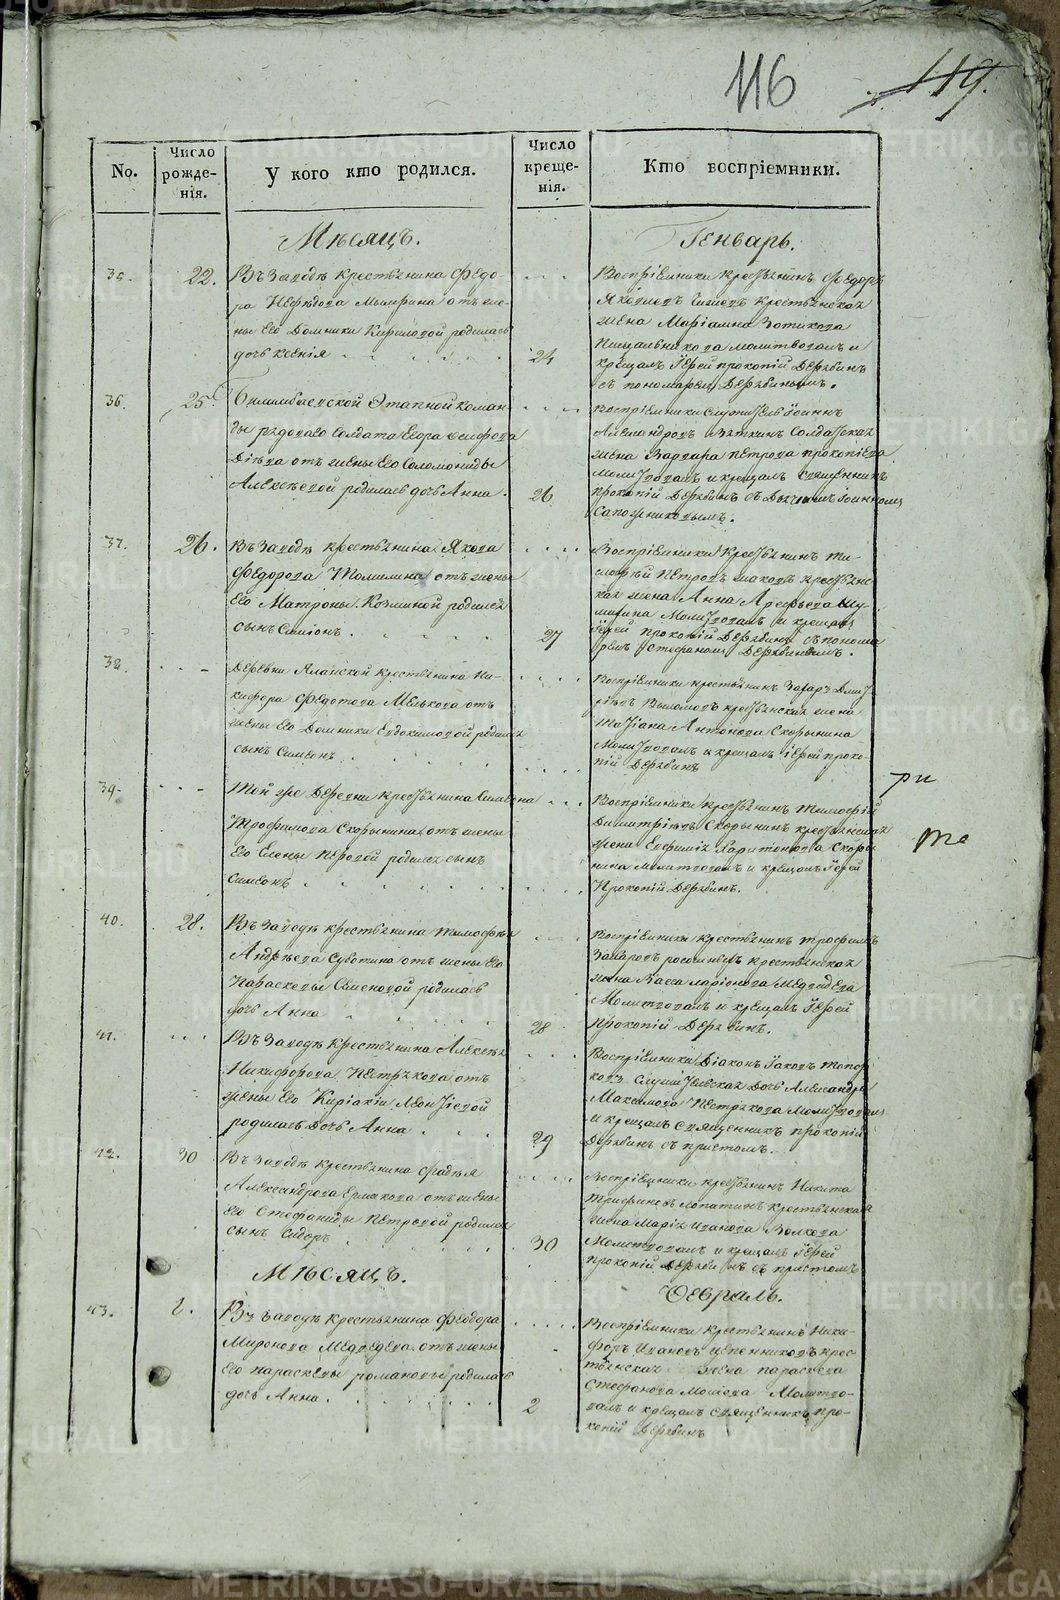 116
119.
No.
Число рожденія.
У кого кто родился.
Число крещенія.
Кто воспріемники.
Мѣсяцъ.
Генварь.
35
22.
Въ Заводѣ крестьянина Федо-
ра Нефедова от же-
ны его Домники Кириловой родилась
дочь Ксенія
24
Воспріемники крестьянинъ Федоръ
Яковлевъ крестьянская
жена Маріамна Зотикова
молитвовалъ и
крещалъ Іерей прокопій Дерябинъ
съ пономаремъ Дерябинымъ.
36.
25.
Билимбаевской Этапной коман-
ды рядоваго Солдата Егора
отъ жены его Соломониды
Алексѣевой родилась дочь Анна.
26
воспріемники Служитель Іоаннъ
Александровъ Вяткинъ Солдатская
жена Варвара петрова прокопіева
молитвовалъ и крещалъ Священникъ
прокопій Дерябинъ съ Дьячкомъ Іоанномъ
Сапожниковымъ.
37.
26.
Въ Заводѣ крестьянина Якова
Федорова Томилина отъ жены
его Матроны Козминой родился
сынъ Симіонъ.
27
Воспріемники крестьянинъ Ти-
мофей Петровъ крестьянс-
кая жена Анна Арефьева Шу-
милина Молитвовалъ и крещалъ
Іерей прокопій Дерябинъ съ понома
ремъ Стефаномъ Дерябинымъ.
38.
Деревни Крестьянина Ни-
кифора Федотова Мелькова отъ
жены его Домники Евдокимовой родился
сынъ Симеонъ
Воспріемники крестьянинъ Захаръ Дмит
ріевъ крестьянская жена
Татіана Антонова Скорынина
Молитвовалъ и крещалъ Іерей проко-
пій Дерябинъ
39.
Той же Деревни крестьянина Симеона
Трофимова Скорынина отъ жены
его Елены Петровой родился сынъ
Симеонъ
Воспріемники крестьянинъ Тимофей
Димитріевъ Скорынинъ крестьянская
жена Евфимія Харитонова Скоры
нина молитвовалъ и крещалъ Іерей
Прокопій Дерябинъ.
ри
та
40.
28.
Въ Заводѣ крестьянина Тимофея
Андреева Субботина отъ жены его
Параскевы Симеоновой родилась
дочь Анна
28
Воспріемники крестьянинъ трофимъ
Захаровъ крестьянская
жена Васса Ларіонова Медведева
Молитвовалъ и крещалъ Іерей
Прокопій Дерябинъ.
41.
Въ Заводѣ Крестьянина Алексея
Никифорова Петрякова отъ
жены его Киріакіи Леонтіевой
родилась Дочь Анна
29
Воспріемники Діаконъ Іаковъ Топор
ковъ Служительская Дочь Александра
Максимова Петрякова Молитвовалъ
и крещалъ Священникъ прокопій
Дерябинъ съ притомъ.
42.
30
Въ Заводѣ крестьянина Фадѣя
Александрова Ермакова отъ жены
его Стефаниды Петровой родился
сынъ Сидоръ
30
Воспріемники крестьянинъ Никита
Трифановъ Лопатинъ крестьянская
жена Марія Иванова Волкова
Молитвовалъ и крещалъ Іерей
прокопій Дерябинъ съ притомъ
Мѣсяцъ.
Февраль.
43.
2.
Въ Заводѣ крестьянина Феодора
Миронова Медведева отъ жены
его параскевы романовы родилась
дочь Анна.
2
Воспріемники крестьянинъ Ники-
форъ Ивановъ крес
тьянская жена параскева
Стефанова Молитво-
валъ и крещалъ Священникъ про-
копій Дерябинъ
METRIKI.GASO-URAL.RU